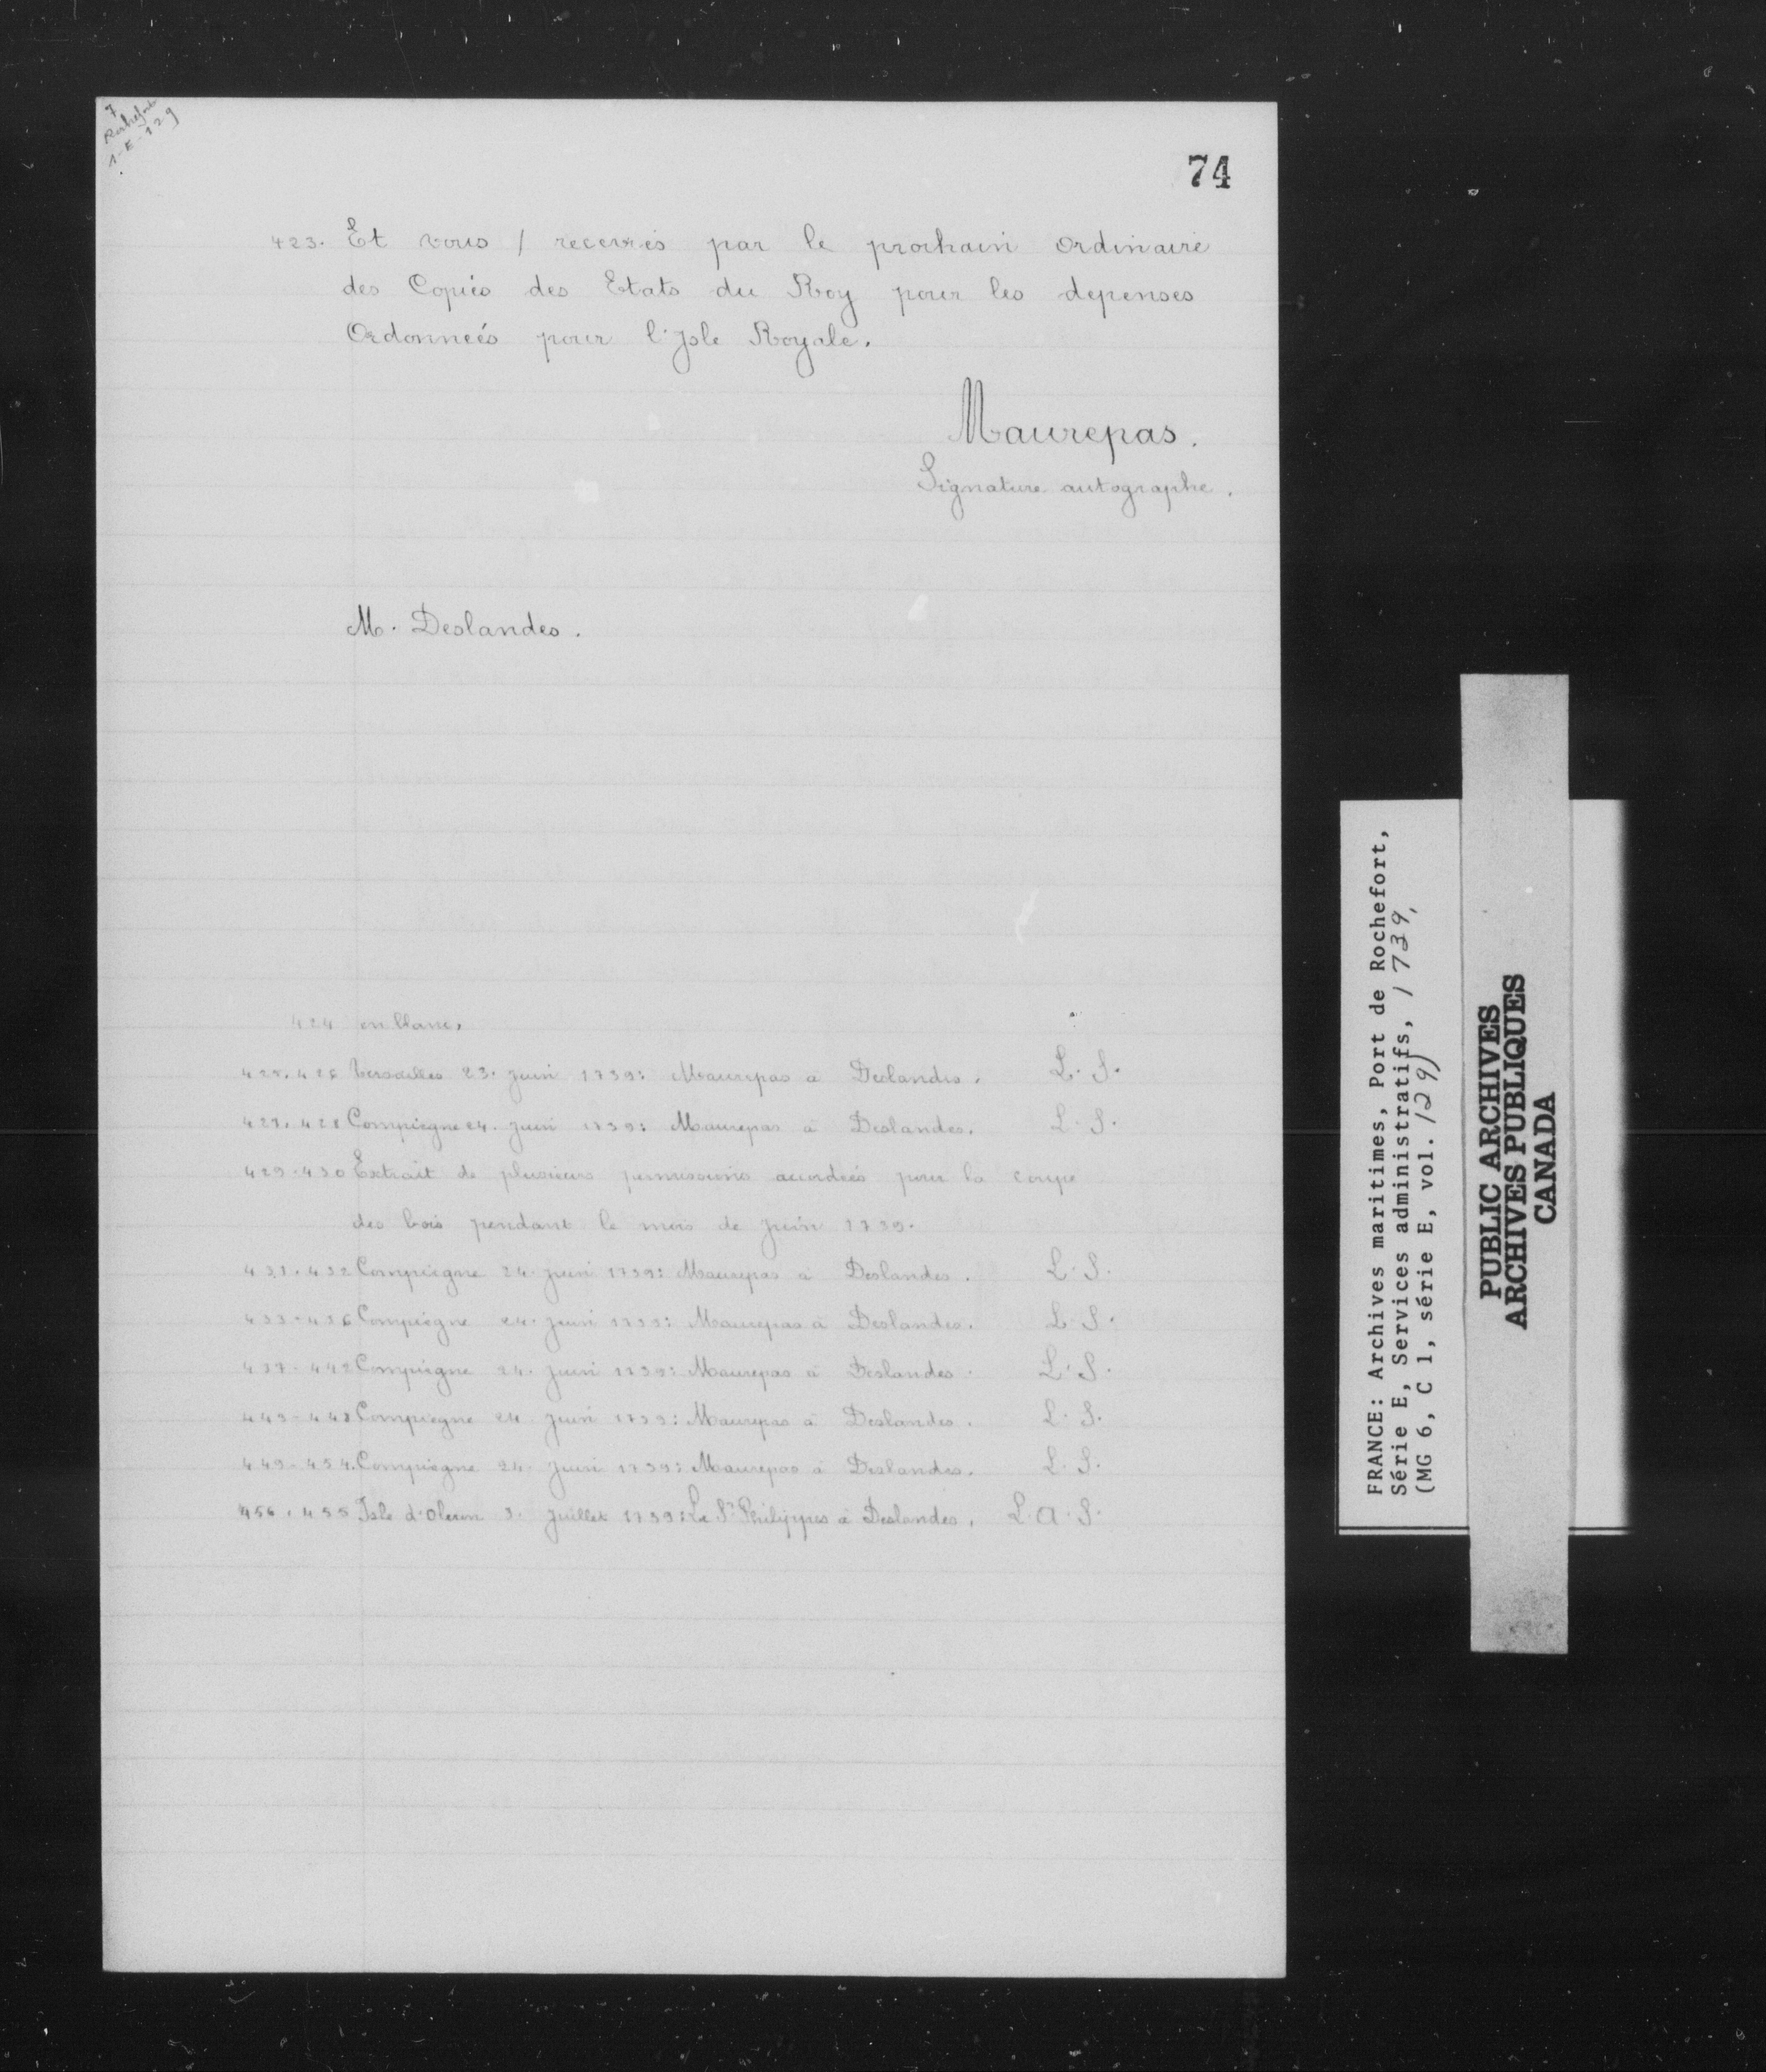 7
Rochefort
1-E-129
74
423. Et vous / recevrés par le prochain ordinaire
des Copies des Etats du Roy pour les depenses
Ordonneés pour l'Isle Royale.
Maurepas.
Signature autographe.
M. Deslandes.
424 en blanc.
425.426 Versailles 23. Juin 1739: Maurepas à Deslandes. L. S.
427.428 Compiegne 24. Juin 1739: Maurepas à Deslandes. L. S.
429-430 Extrait de plusieurs permissions accordées pour la coupe
des bois pendant le mois de Juin 1739.
431.432 Compiegne 24. Juin 1739: Maurepas à Deslandes. L. S.
433-436 Compiegne 24. Juin 1739: Maurepas à Deslandes. L. S.
437-442 Compiegne 24. Juin 1739: Maurepas à Deslandes. L. S.
443-448 Compiegne 24. Juin 1739: Maurepas à Deslandes. L. S.
449-454. Compiegne 24. Juin 1739: Maurepas à Deslandes. L. S.
456.455 Isle d'Oleron 3. Juillet 1739: Le Sr Philippes à Deslandes. L. A. S.
FRANCE: Archives maritimes, Port de Rochefort,
Série E, Services administratifs, 1739,
(MG 6, C 1, série E, vol. 129)
PUBLIC ARCHIVES
ARCHIVES PUBLIQUES
CANADA